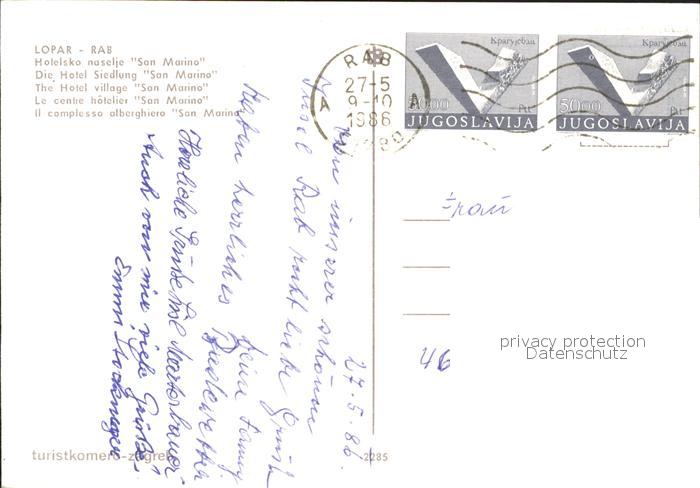 LOPAR - RAB
Hotelsko naselje "San Marino"
Die Hotel Siedlung "San Marino"
The Hotel village "San Marino"
Le centre hôtelier "San Marino"
Il complesso alberghiero "San Marino"
RAB
27-5
9-10
1986
A A
Крагујевац
50.00
Рат
JUGOSLAVIJA
Крагујевац
50.00
Рат
JUGOSLAVIJA
27.5.86.
Von unserer schönen
Insel Rab recht liebe Grüße
Haben herrliches Badewetter
Herzliche Grüße
Auch von mir viele Grüße
Frau
46
privacy protection
Datenschutz
turistkomerc-zagreb
2285